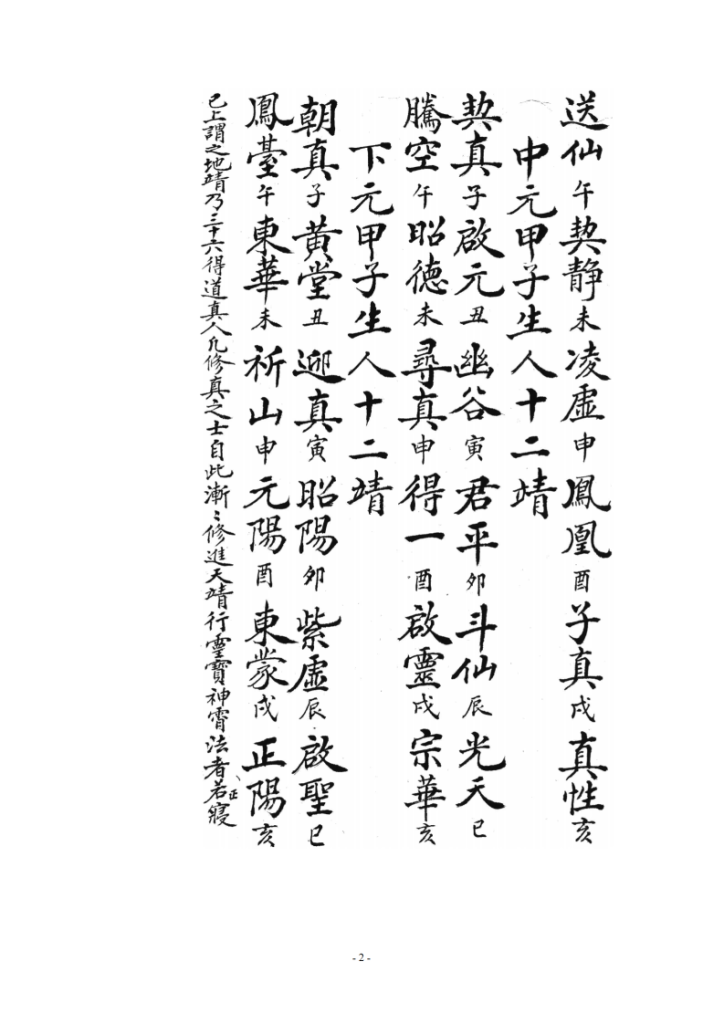 送仙午契静未凌虛申鳳凰酉子真戌真性亥
中元甲子生人十二靖
契真子啟元丑幽谷寅君平卯斗仙辰光天巳
騰空午昭德未尋真申得一酉啟靈戌宗華亥
下元甲子生人十二靖
朝真子黄堂丑迎真寅昭陽卯紫虛辰啟聖巳
鳳臺午東華未祈山申元陽酉東蒙戌正陽亥
已上謂之地靖乃三十六得道真人凡修真之士自此漸〻修進天靖行靈寶神霄法者若寢
正
- 2 -